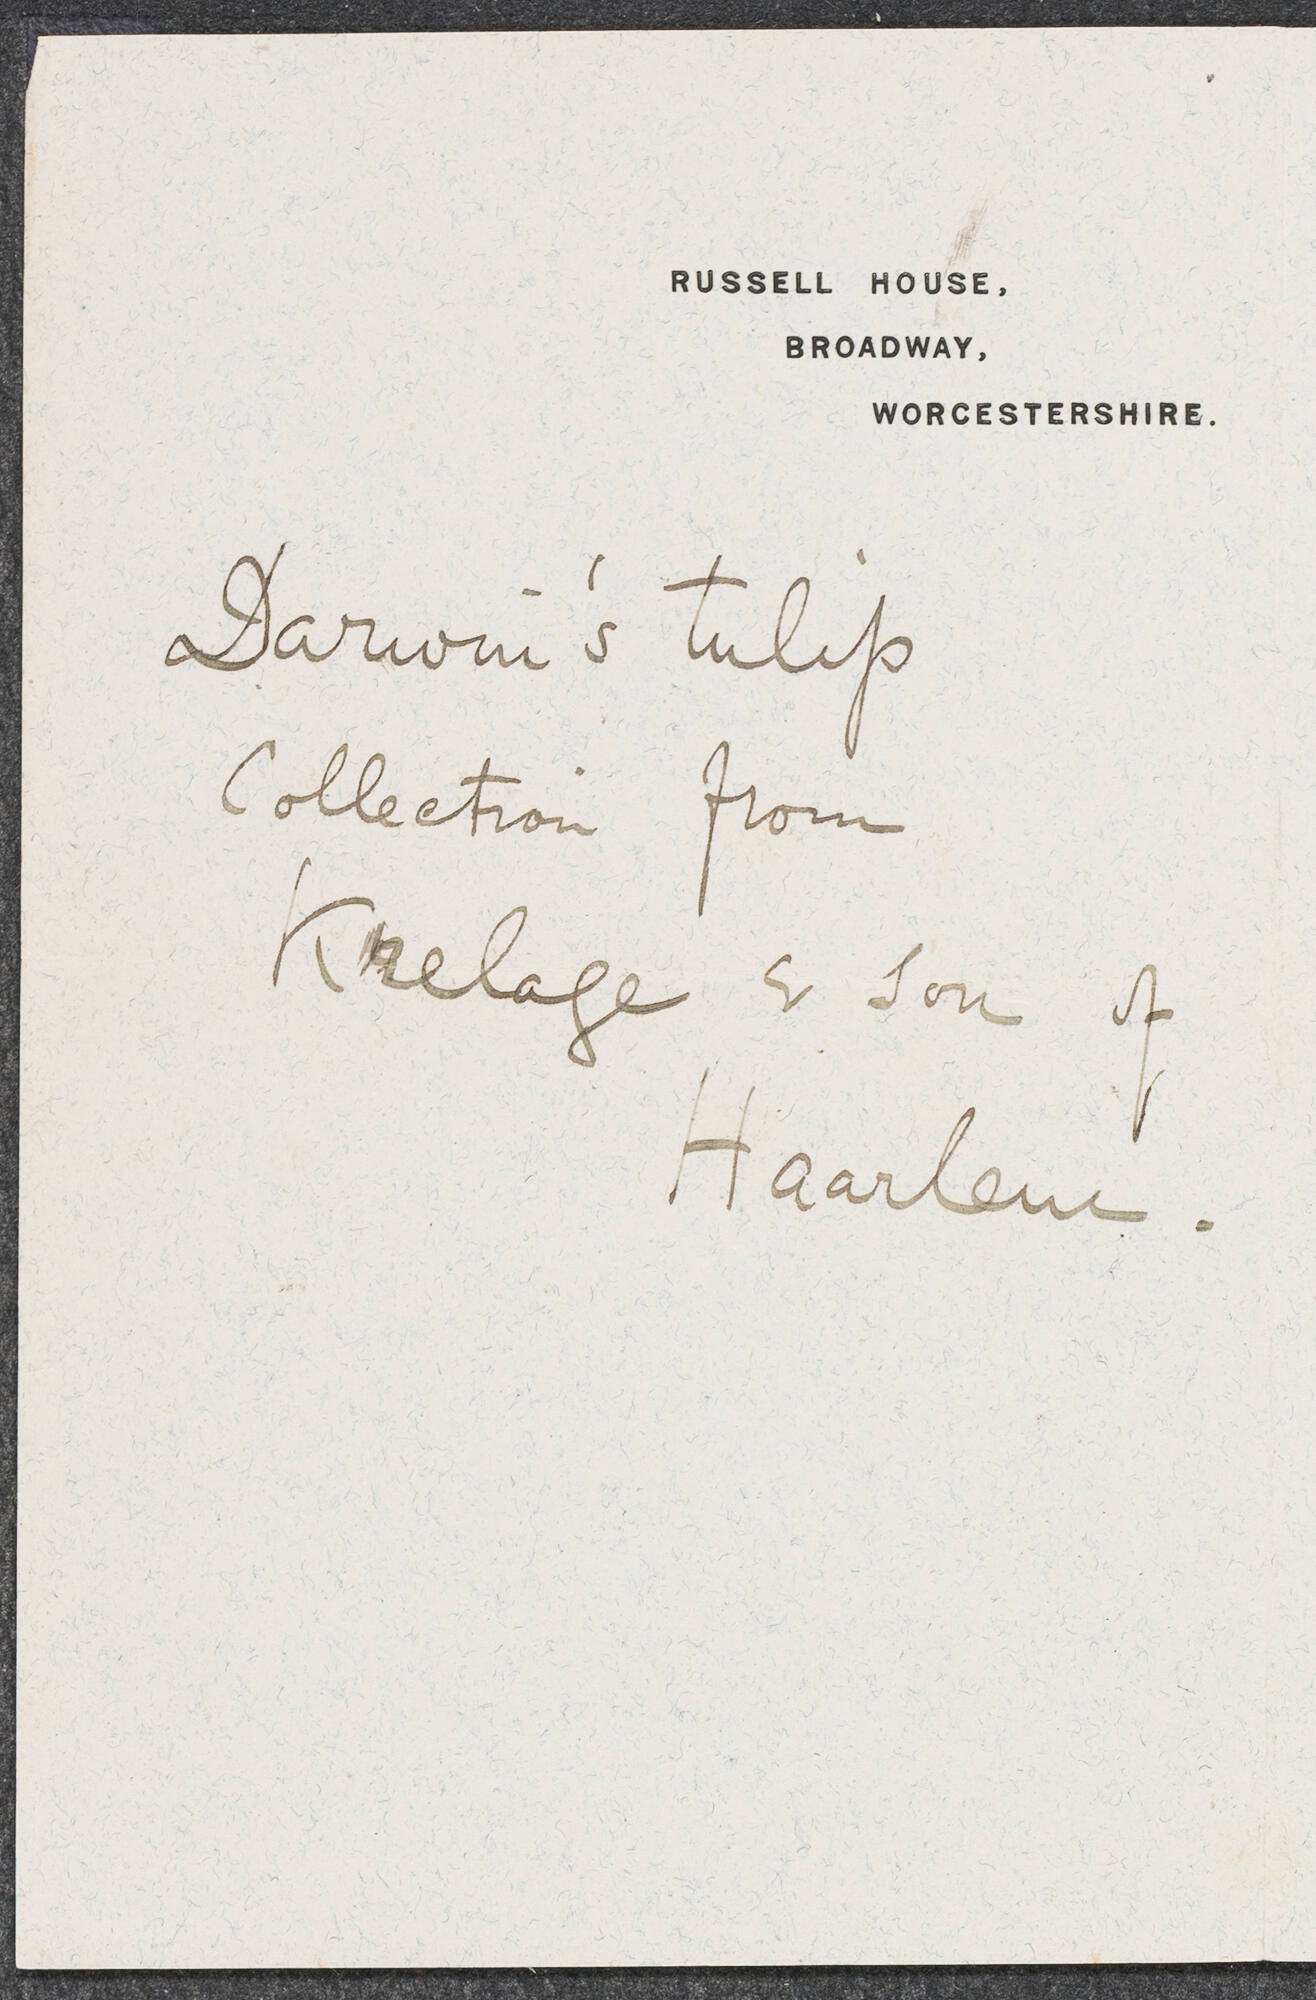 RUSSELL HOUSE,
BROADWAY,
WORCESTERSHIRE.
Darwin's tulip
Collection from
Krelage & Son of
Haarlem.